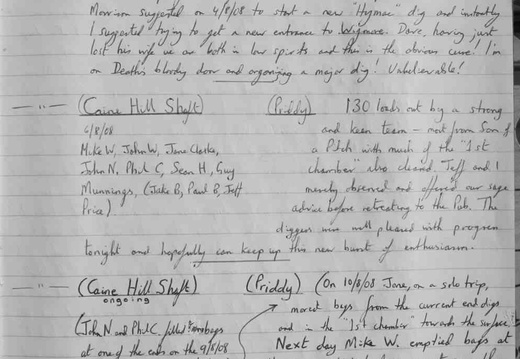 Morrison suggested on 4/8/08 to start a new "Hymac" dig and instantly
I suggested trying to get a new entrance to Wigmore. Dave, having just
lost his wife we are both in low spirits and this is the obvious cure! I'm
on Death's bloody door and organizing a major dig! Unbelievable!
— " — (Caine Hill Shaft) (Priddy) 130 loads out by a strong
6/8/08 and keen team - most from Son of
Mike W, John W, Jane Clarke, a Pitch with much of the "1st
John N, Phil C, Sean H, Guy chamber" also cleared. Jeff and I
Munnings, (Jake B, Paul B, Jeff merely observed and offered our sage
Price) advice before retreating to the Pub. The
diggers well pleased with progress
tonight and hopefully can keep up this new burst of enthusiasm.
— " — (Caine Hill Shaft) (Priddy) (On 10/8/08 Jane, on a solo trip,
ongoing moved bags from the current end digs
(John N and Phil C, filled bags and in the "1st chamber" towards the surface.
at one of the ends on the 9/8/08 Next day Mike W. emptied bags at